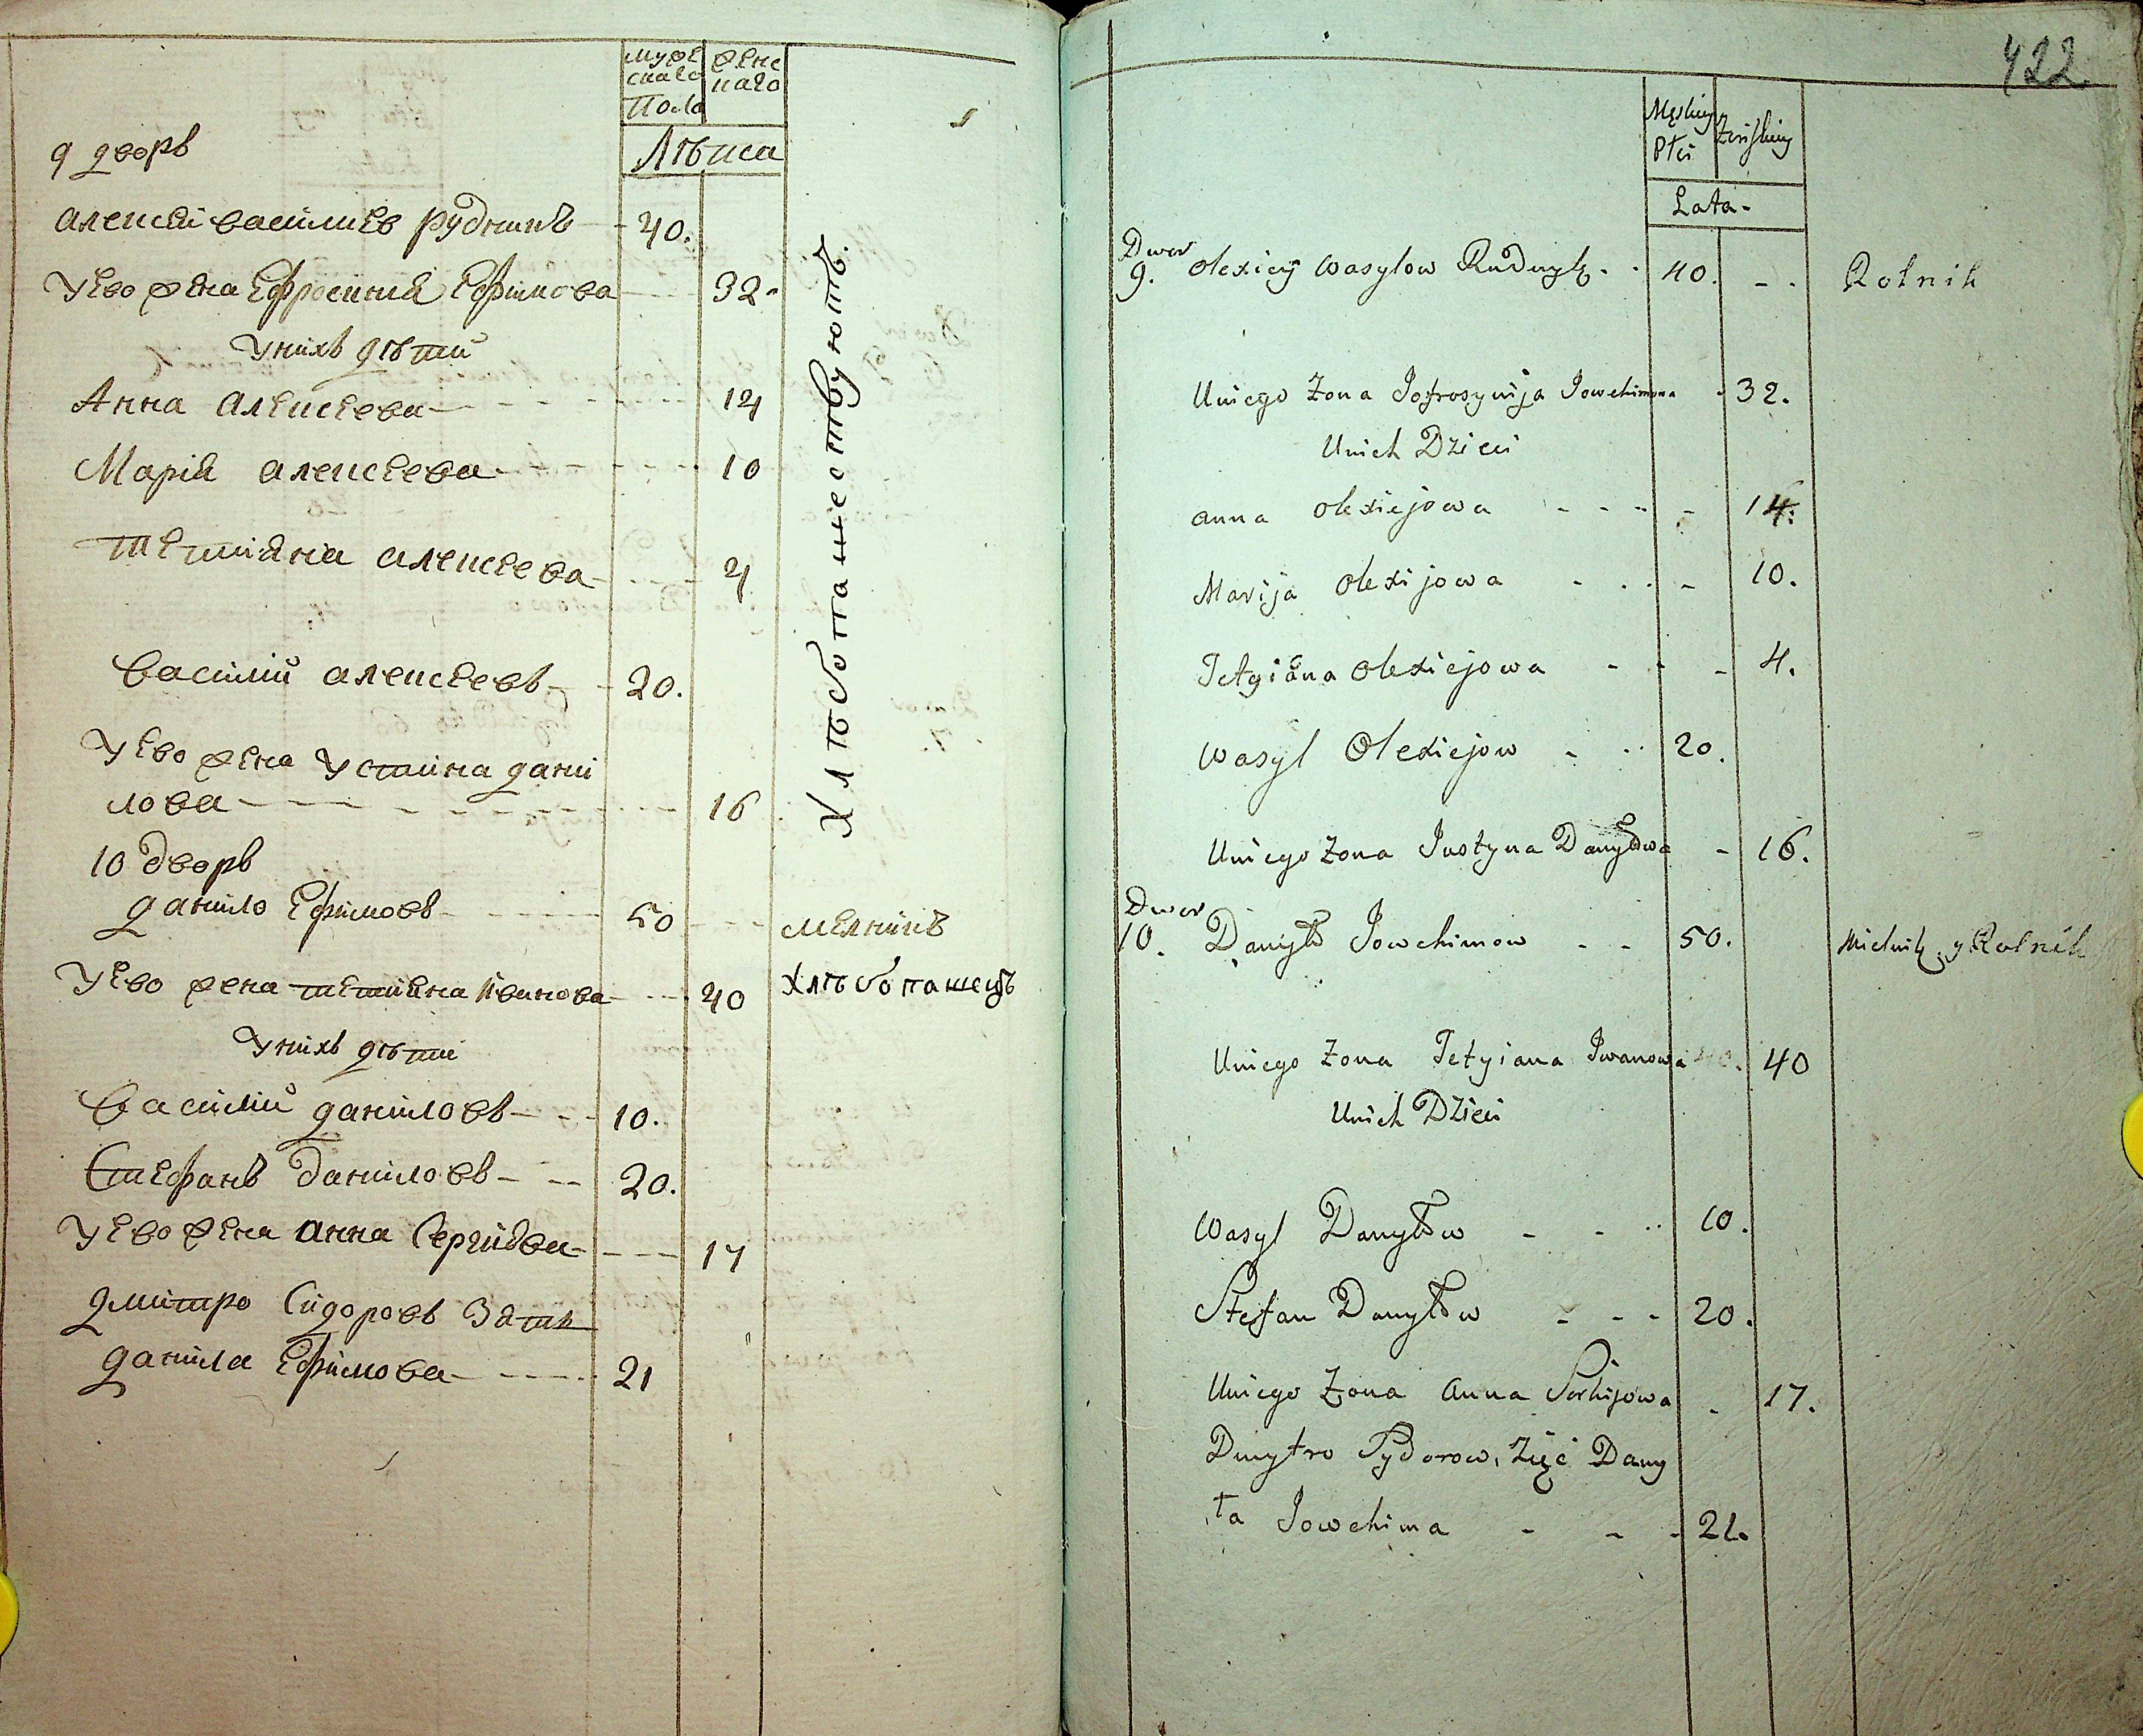 муже
скаго
Пола
женс
каго
Лѣта
9 дворъ
Алексей васильев рудникъ 40.
У ево жена Ефросиния Ефимова 32.
У нихъ дѣти
Анна Алексеева 14
Мария алексеева 10
тетияна алексеева 4
Василий алексеевъ 20.
У ево жена Устина дани
лова 16
10 дворъ
данило Ефимовъ 50 мелникъ
У ево жена тетияна Иванова 40 хлѣбопашецъ
У нихъ дѣти
Василий даниловъ 10.
Стефанъ даниловъ 20.
У ево жена анна Сергиева 17
дмитро Сидоровъ Зять
данила Ефимова 21
Хлѣбопашествуютъ.
422
Męskiey
Płci
Żeńskiey
Lata.
Dwor
9. Olexiey Wasylow Rudnyk 40. Rolnik
Uniego Żona Jofrosynija Jowchimowa 32.
Unich Dzieci
Anna Olexiejowa 14.
Marija Olexijowa 10.
Tetyiana Olexiejowa 4.
Wasyl Olexiejow 20.
Uniego Żona Justyna Danyłowa 16.
Dwor
10. Danyło Jowchimow 50. Mielnik y Rolnik
Uniego Żona Tetyiana Iwanowa 40
Unich Dzieci
Wasyl Danyłow 10.
Stefan Danyłow 20.
Uniego Żona Anna Serhijowa 17.
Dmytro Sydorow, Zięć Dany
ła Jowchima 21.